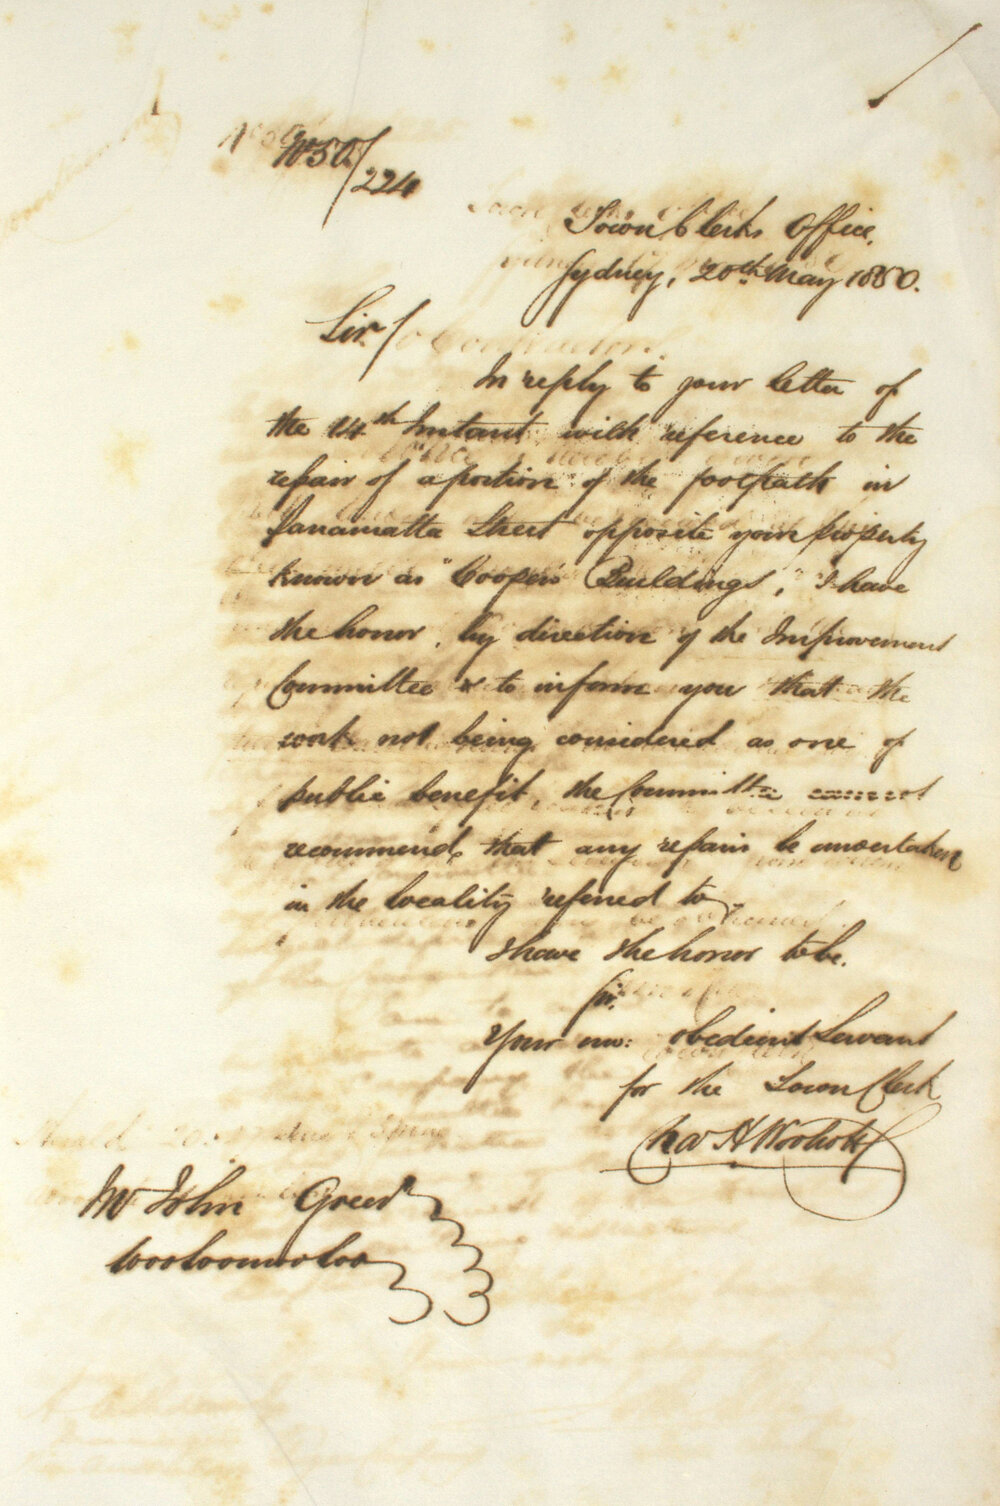 No 50/
224
Town Clerks Office,
Sydney, 20th May 1850.
Sir/
In reply to your letter of
the 14th Instant with reference to the
repair of a portion of the footpath in
Parramatta Street opposite your property
known as "Coopers Buildings," I have
the honor, by direction of the Improvement
Committee to inform you that the
work not being considered as one of
public benefit, the Committee cannot
recommend that any repairs be undertaken
in the locality referred to.
I have the honor to be.
Sir.
Your mo: obedient Servant
for the Town Clerk
Chas H Woolcott
Mr John
Woolloomooloo